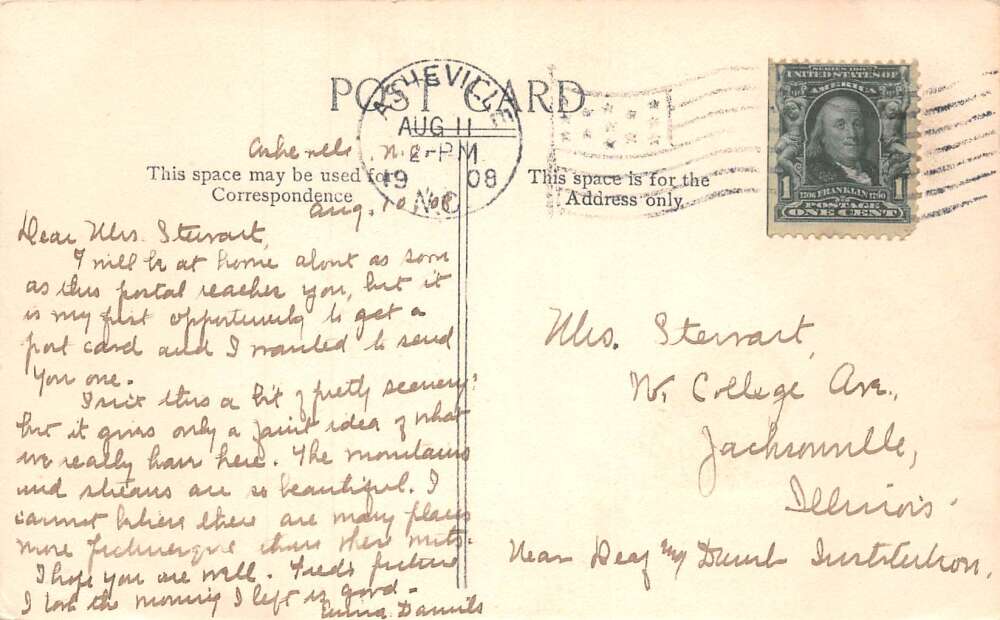 POST CARD
ASHEVILLE
AUG 11
2-PM
1908
N.C.
SERIES 1902
UNITED STATES OF
AMERICA
1 1
1706 FRANKLIN 1790
POSTAGE
ONE CENT
This space may be used for
Correspondence
This space is for the
Address only
Asheville N.C.
Aug. 10 '08
Dear Mrs. Stewart,
I will be at home about as soon
as this postal reaches you, but it
is my first opportunity to get a
post card and I wanted to send
you one.
Isn't this a bit of pretty scenery?
but it gives only a faint idea of what
we really have here. The mountains
and streams are so beautiful. I
cannot believe there are many places
more picturesque than these mts.
I hope you are well. Fred's picture
I took the morning I left is good.
Anna Daniels
Mrs. Stewart,
W. College Ave.,
Jacksonville,
Illinois.
Near Deaf and Dumb Institution.